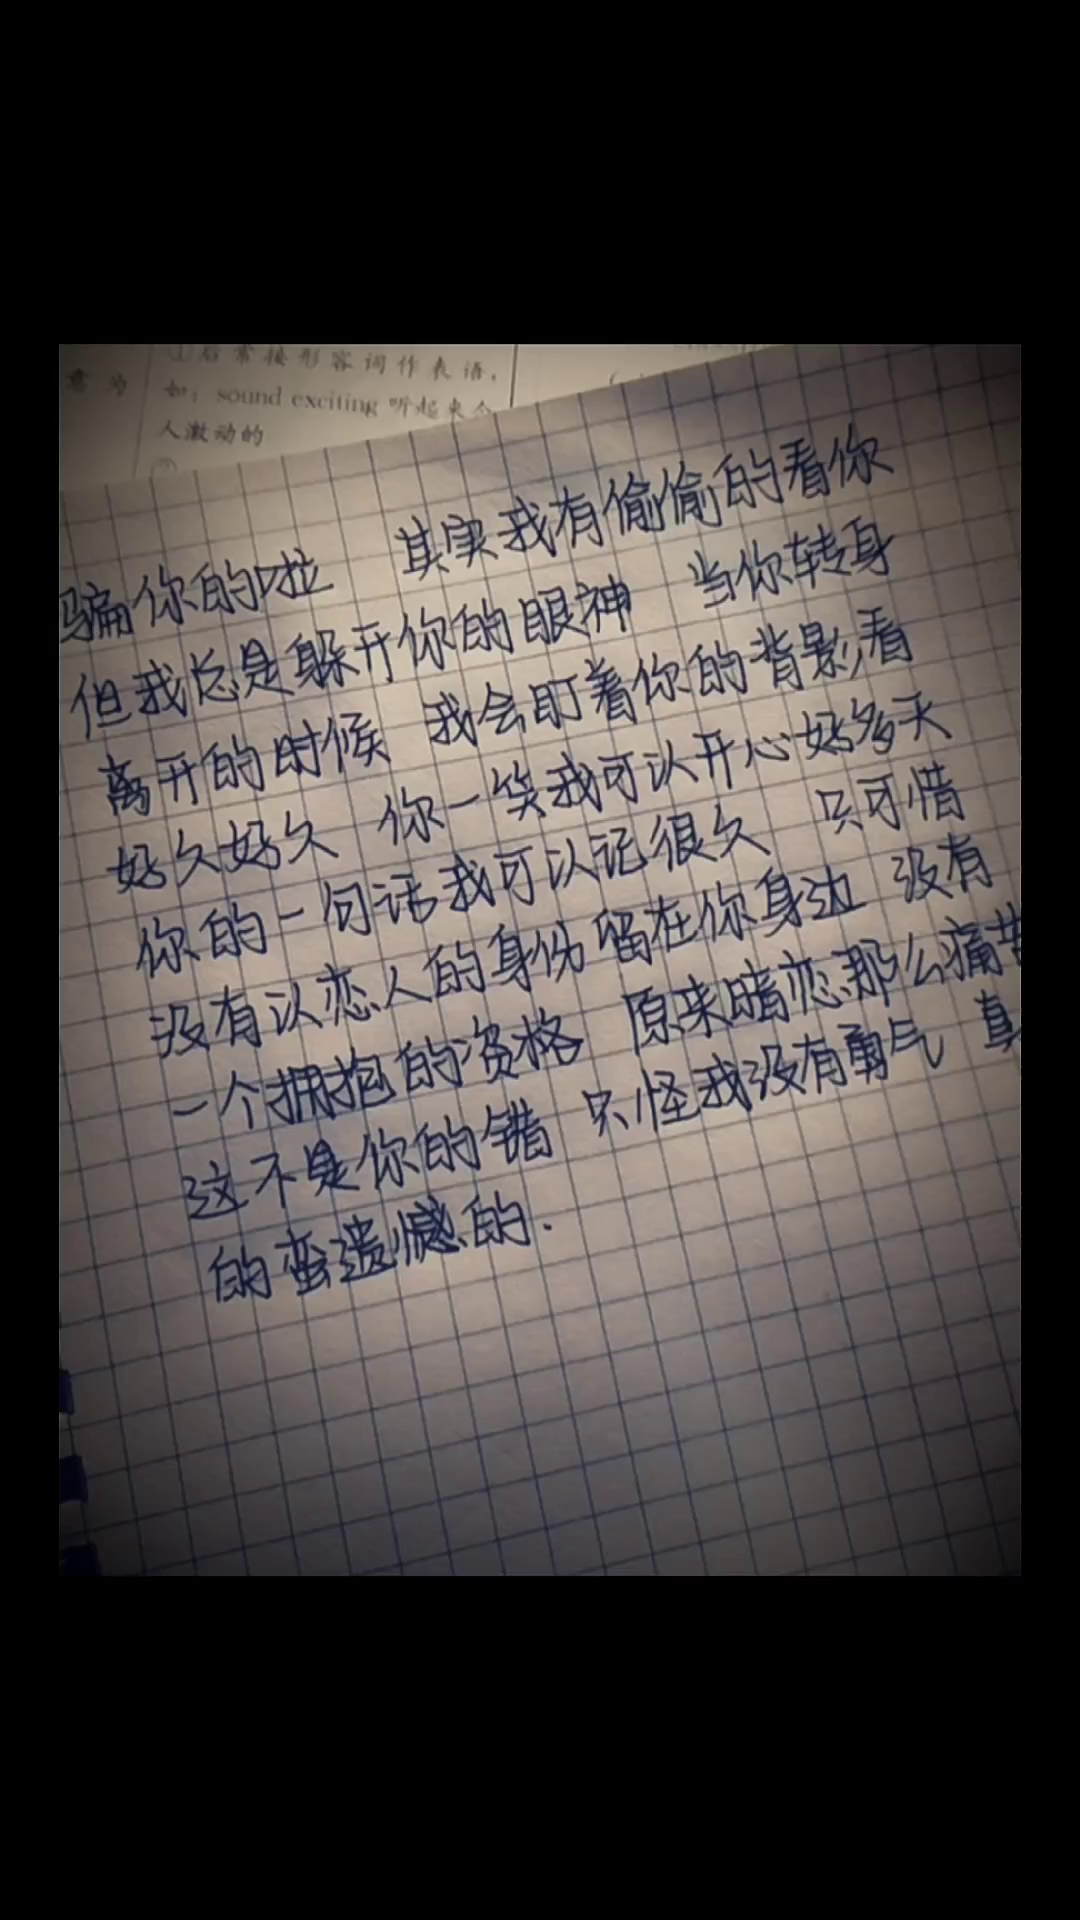 ①后常接形容词作表语,
意为
如：sound exciting 听起来令
人激动的
骗你的啦 其实我有偷偷的看你
但我总是躲开你的眼神 当你转身
离开的时候 我会盯着你的背影看
好久好久 你一笑我可以开心好多天
你的一句话我可以记很久 只可惜
没有以恋人的身份留在你身边 没有
一个拥抱的资格 原来暗恋那么痛苦
这不是你的错 只怪我没有勇气 真
的蛮遗憾的.